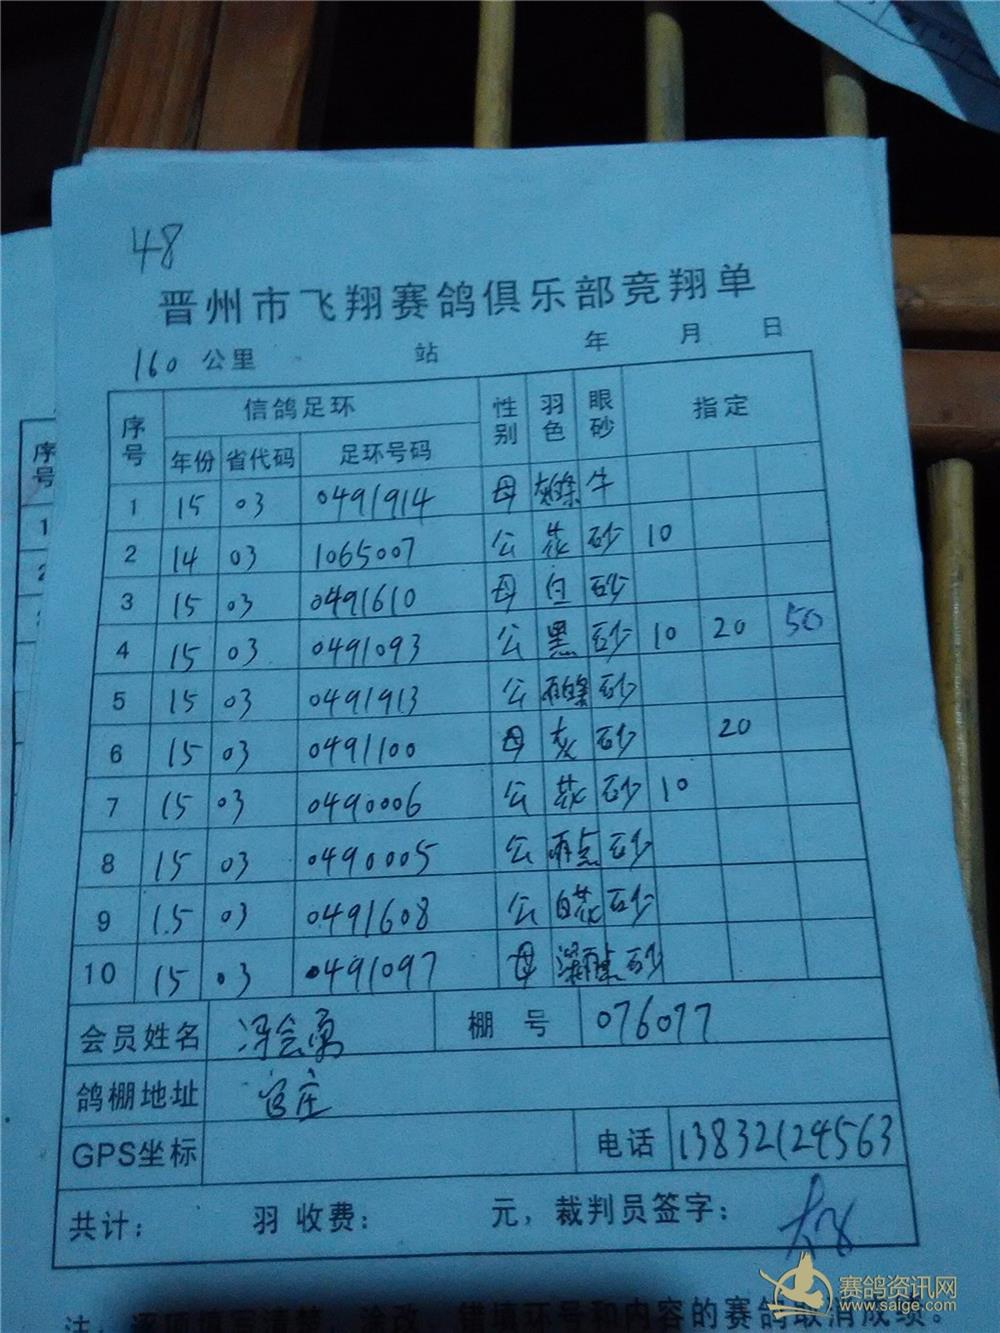 48
晋州市飞翔赛鸽俱乐部竞翔单
160 公里 站 年 月 日
序号 信鸽足环 性别 羽色 眼砂 指定
年份 省代码 足环号码
1 15 03 0491914 母 灰白条 牛
2 14 03 1065007 公 花 砂 10
3 15 03 0491610 母 白 砂
4 15 03 0491093 公 黑 砂 10 20 50
5 15 03 0491913 公 砂
6 15 03 0491100 母 灰 砂 20
7 15 03 0490006 公 花 砂 10
8 15 03 0490005 公 雨点 砂
9 15 03 0491608 公 白花 砂
10 15 03 0491097 母 砂
会员姓名 冯会勇 棚号 076077
鸽棚地址 官庄
GPS坐标 电话 13832124563
共计: 羽 收费: 元，裁判员签字:
清楚，涂改、错填环号和内容的赛鸽取消成绩。
赛鸽资讯网
www.saige.com
序号
1
2